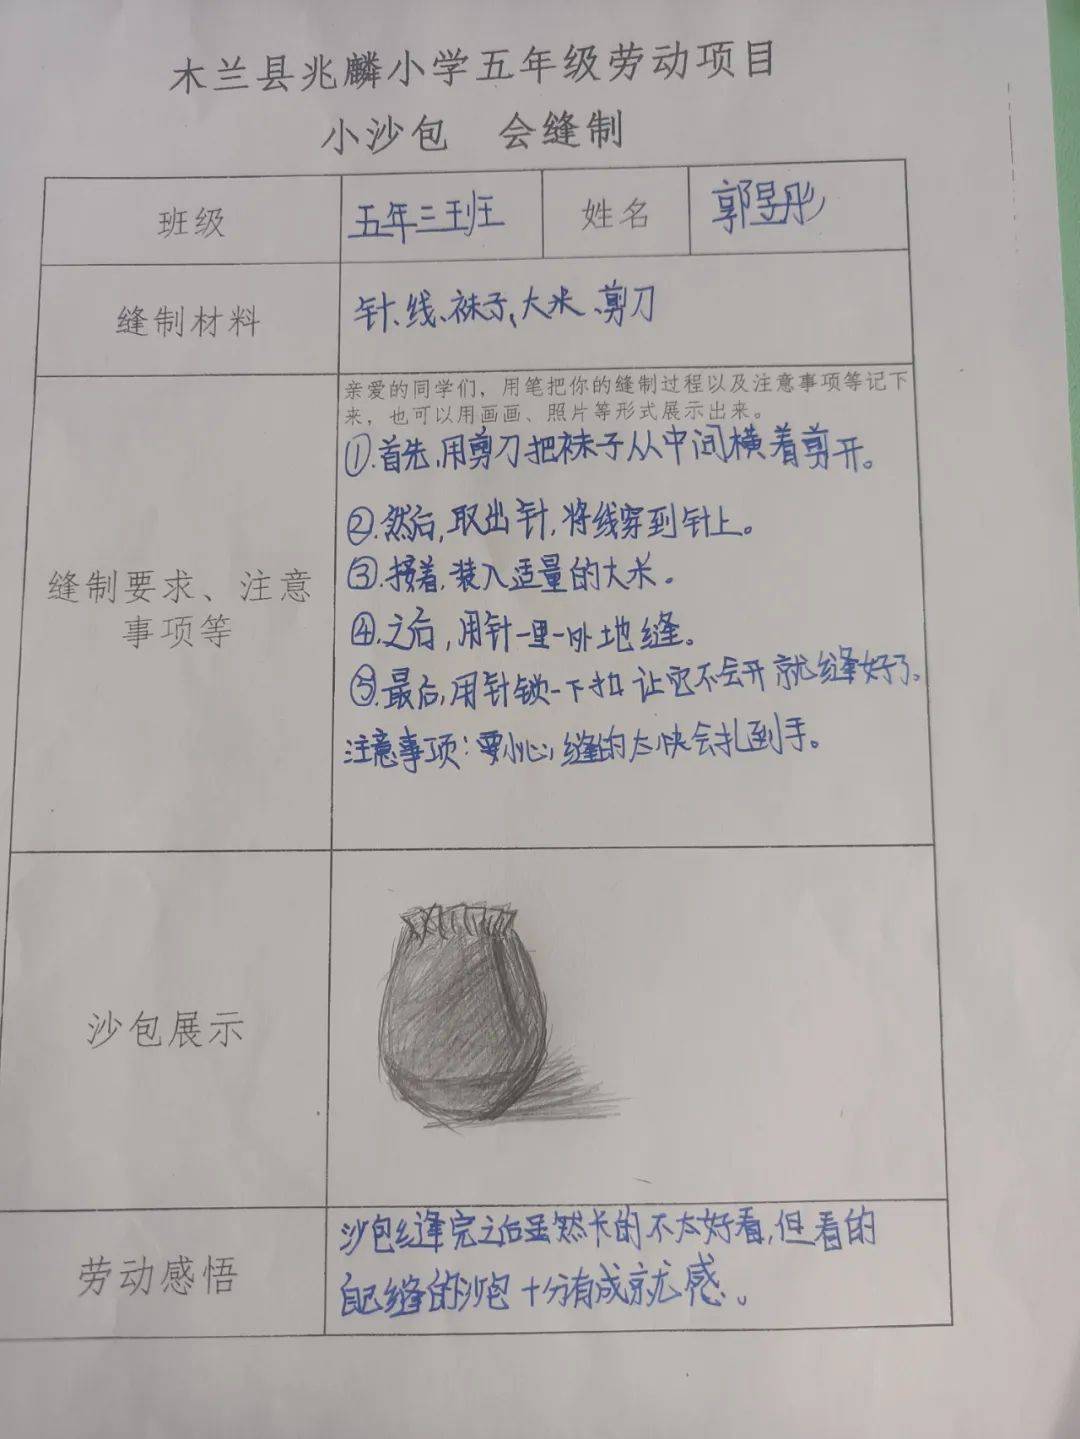 木兰县兆麟小学五年级劳动项目
小沙包 会缝制
班级 五年三班 姓名 郭昱彤
缝制材料 针、线、袜子、大米、剪刀
亲爱的同学们，用笔把你的缝制过程以及注意事项等记下
来，也可以用画画、照片等形式展示出来。
①.首先,用剪刀把袜子从中间横着剪开。
②.然后,取出针,将线穿到针上。
③.接着,装入适量的大米。
④.之后,用针一里一外地缝。
⑤.最后,用针锁一下扣让它不会开就缝好了。
注意事项:要小心,缝的太快会扎到手。
缝制要求、注意
事项等
沙包展示
沙包缝完之后虽然长的不太好看,但看的
自己缝的沙包十分有成就感。
劳动感悟